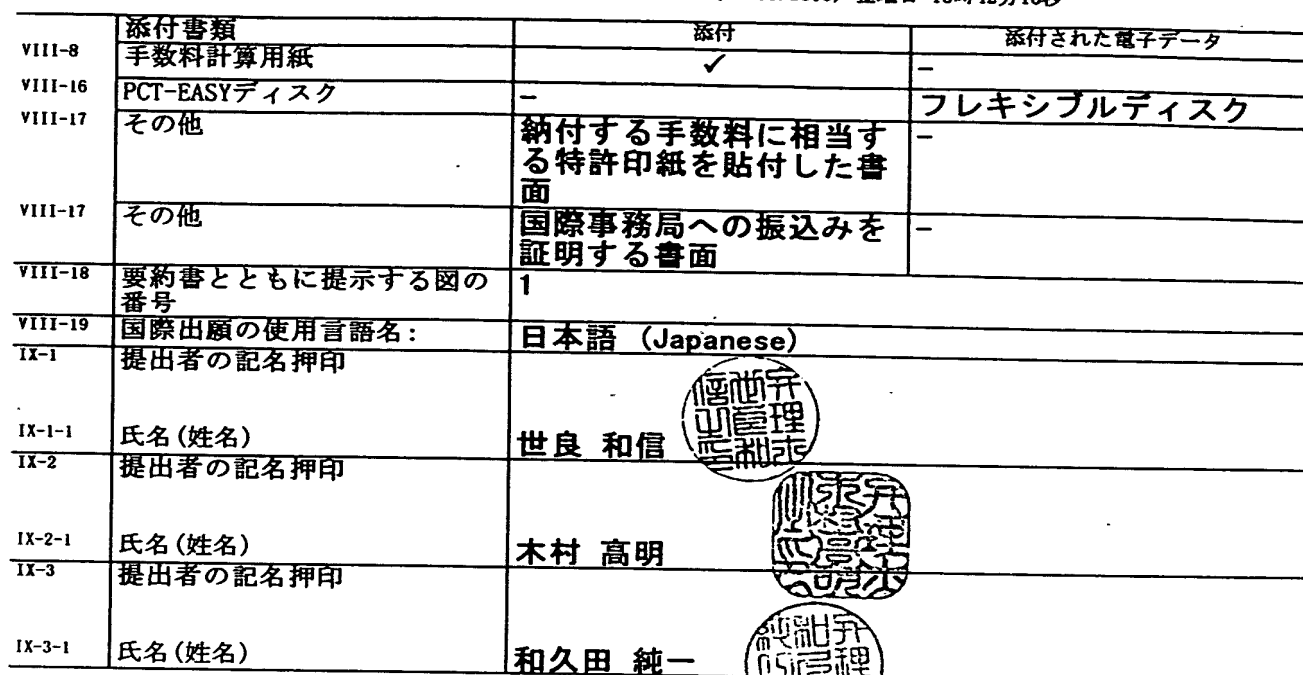 添付書類 添付 添付された電子データ
VIII-8 手数料計算用紙 ✓ -
VIII-16 PCT-EASYディスク - フレキシブルディスク
VIII-17 その他 納付する手数料に相当す -
る特許印紙を貼付した書
面
VIII-17 その他 国際事務局への振込みを -
証明する書面
VIII-18 要約書とともに提示する図の 1
番号
VIII-19 国際出願の使用言語名: 日本語 (Japanese)
IX-1 提出者の記名押印
IX-1-1 氏名(姓名) 世良 和信
IX-2 提出者の記名押印
IX-2-1 氏名(姓名) 木村 高明
IX-3 提出者の記名押印
IX-3-1 氏名(姓名) 和久田 純一